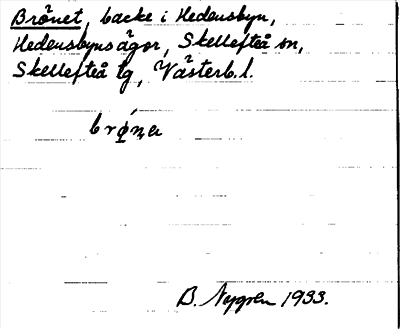 Brönet, backe i Hedensbyn,
Hedensbynsägor, Skellefteå sn,
Skellefteå tg, Västerb. l.
brǿ̜ṇa
B. Nygren 1933.